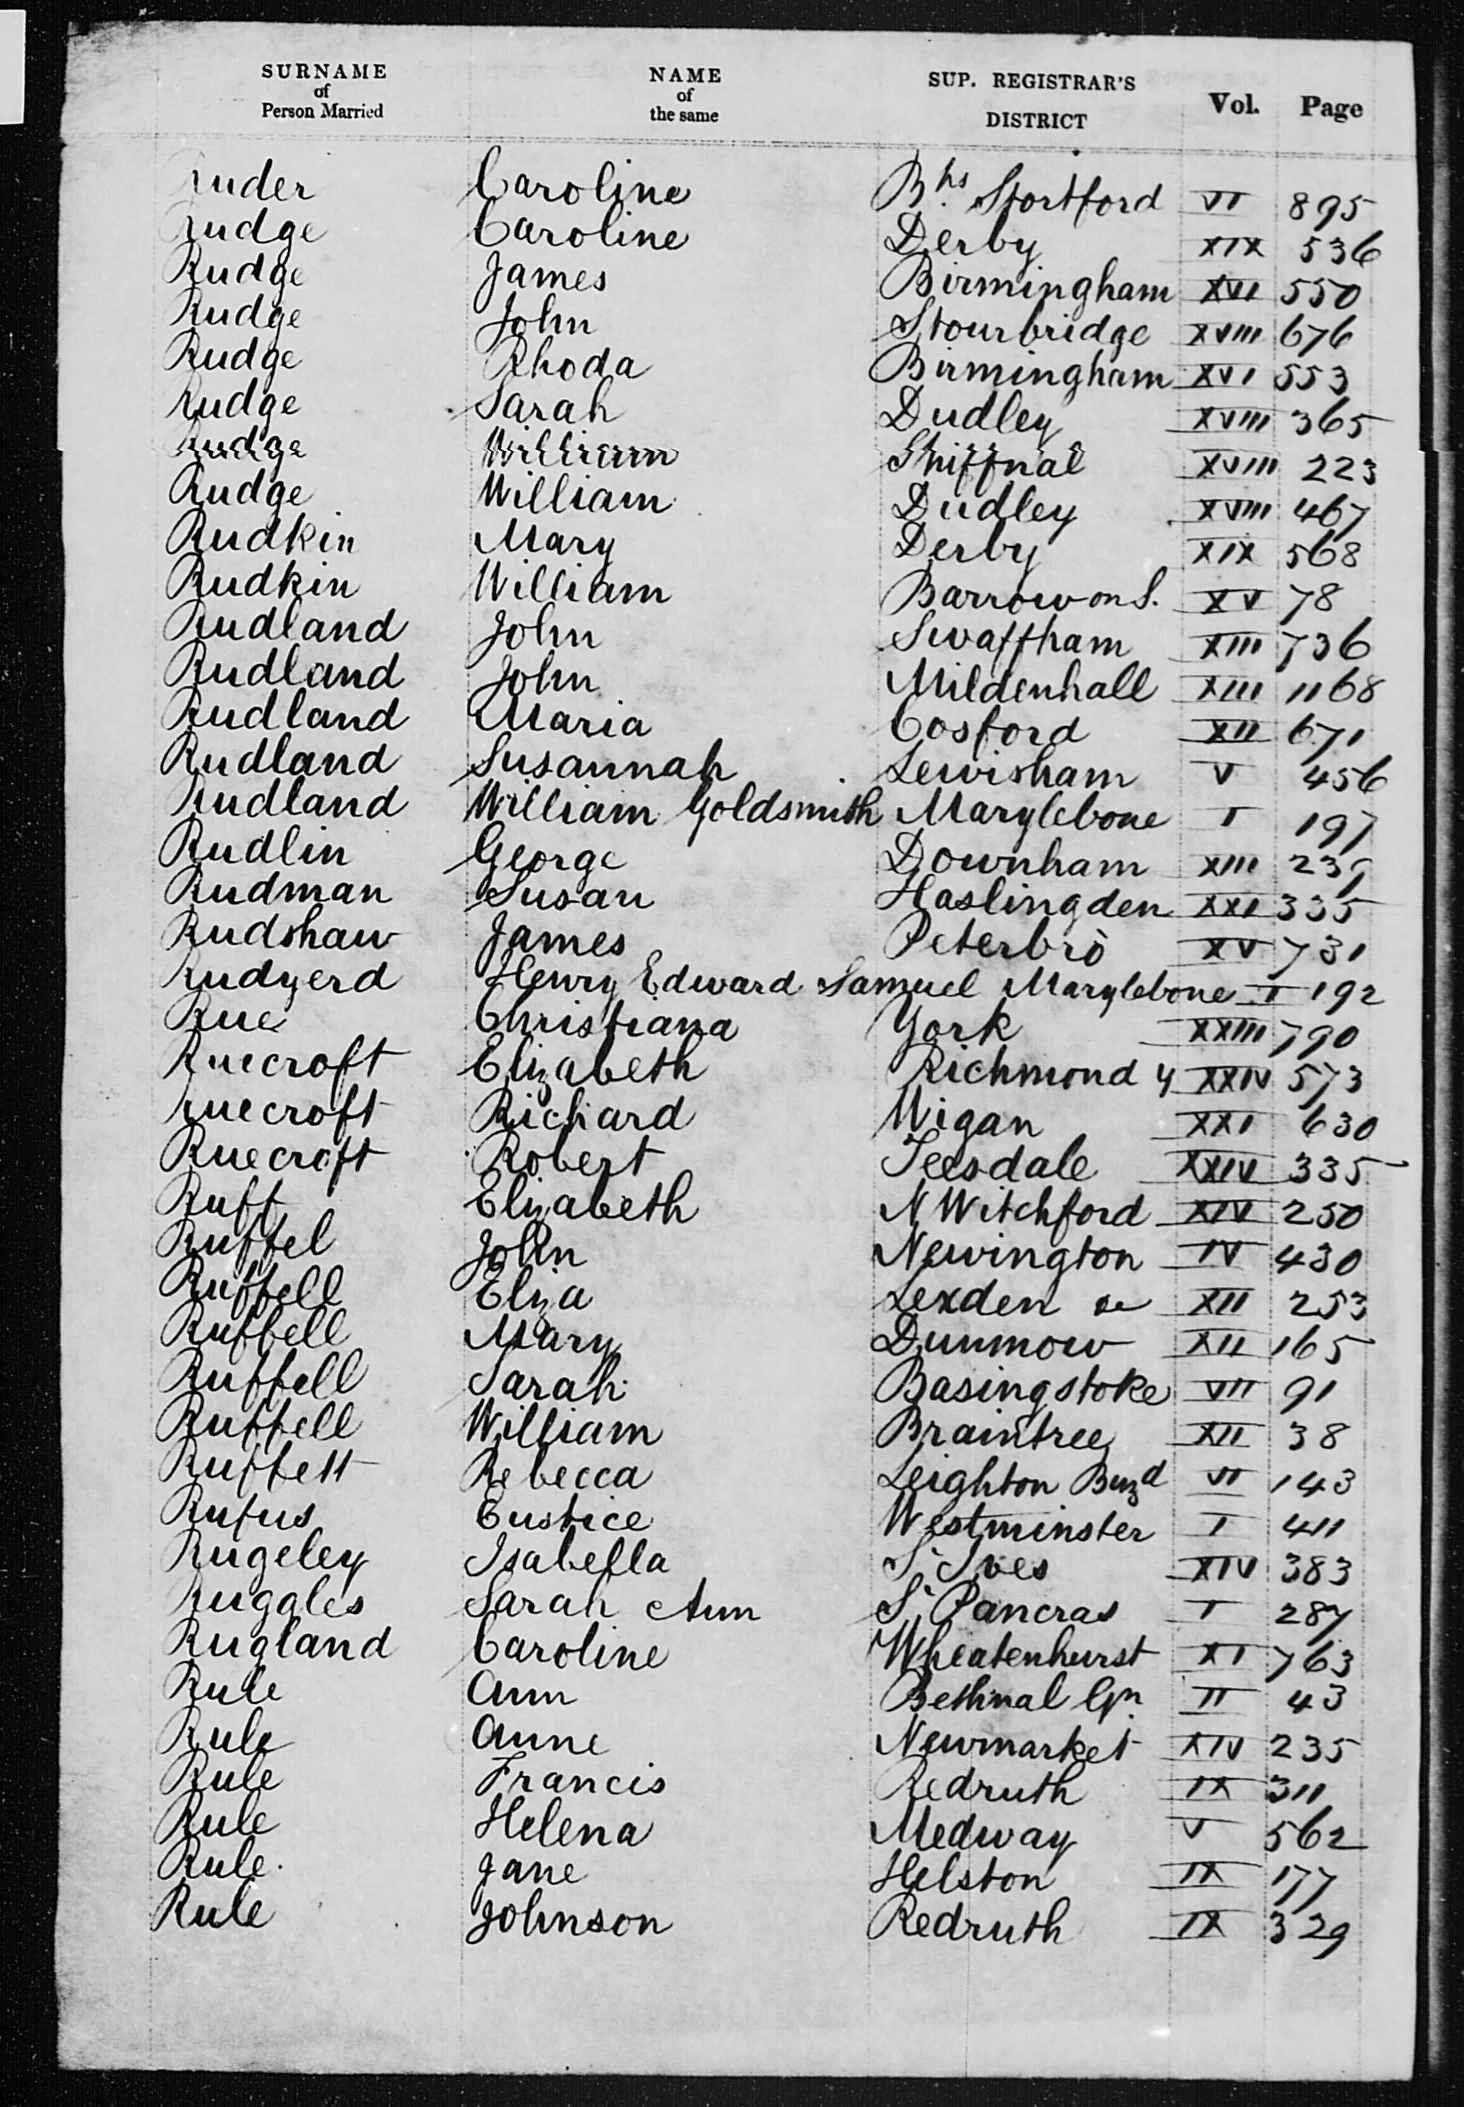 SURNAME of Person Married NAME of the same SUP. REGISTRAR'S DISTRICT Vol. Page
Ruder Caroline Bhs. Stortford VI 895
Rudge Caroline Derby XIX 536
Rudge James Birmingham XVI 550
Rudge John Stourbridge XVIII 676
Rudge Rhoda Birmingham XVI 553
Rudge Sarah Dudley XVIII 365
Rudge William Shiffnal XVIII 223
Rudge William Dudley XVIII 467
Rudkin Mary Derby XIX 568
Rudkin William Barrow on S. XV 78
Rudland John Swaffham XIII 736
Rudland John Mildenhall XIII 1168
Rudland Maria Cosford XII 671
Rudland Susannah Lewisham V 456
Rudland William Goldsmith Marylebone I 197
Rudlin George Downham XIII 235
Rudman Susan Haslingden XXI 335
Rudshaw James Peterbro XV 731
Rudyerd Henry Edward Samuel Marylebone I 192
Rue Christiana York XXIII 790
Ruecroft Elizabeth Richmond Y XXIV 573
Ruecroft Richard Wigan XXI 630
Ruecroft Robert Teesdale XXIV 335
Ruff Elizabeth N Witchford XIV 250
Ruffel John Newington IV 430
Ruffell Eliza Lexden &c XII 253
Ruffell Mary Dunmow XII 165
Ruffell Sarah Basingstoke VII 91
Ruffell William Braintree XII 38
Ruffett Rebecca Leighton Buzd VI 143
Rufus Eustice Westminster I 411
Rugeley Isabella St Ives XIV 383
Ruggles Sarah Ann St Pancras I 287
Rugland Caroline Wheatenhurst XI 763
Rule Ann Bethnal Gn. II 43
Rule Anne Newmarket XIV 235
Rule Francis Redruth IX 311
Rule Helena Medway V 562
Rule Jane Helston IX 177
Rule Johnson Redruth IX 329